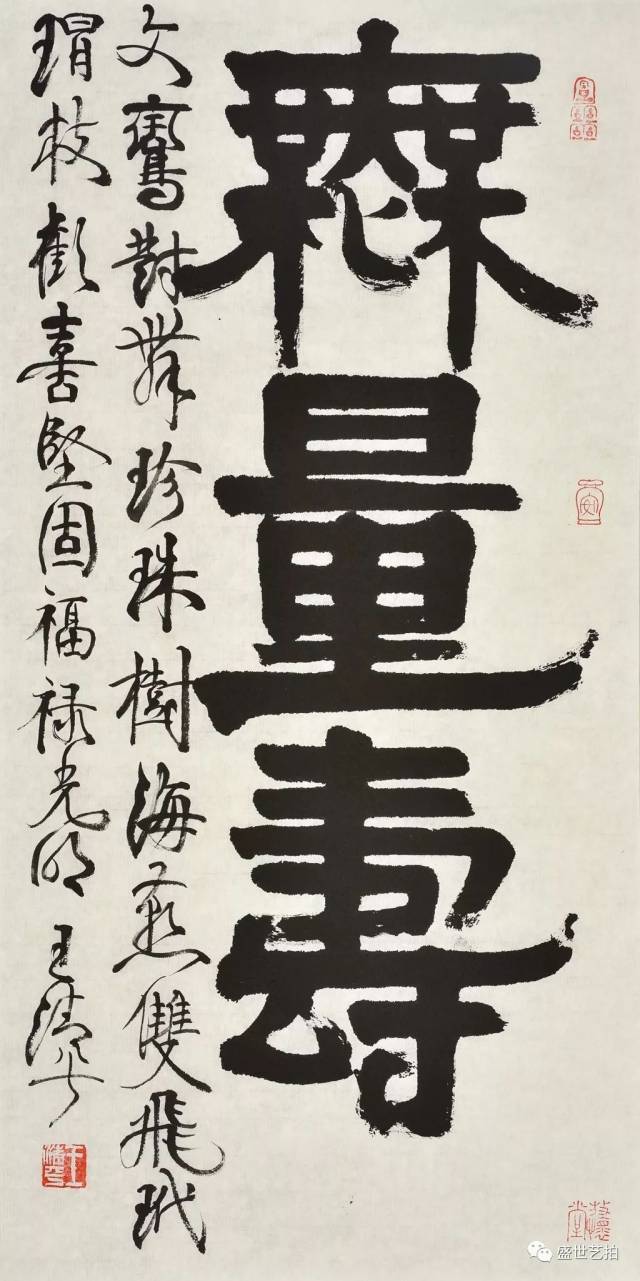 無量壽
文鸞對舞珍珠樹海燕雙飛玳
瑁枝歡喜堅固福禄光明 王清
盛世艺拍